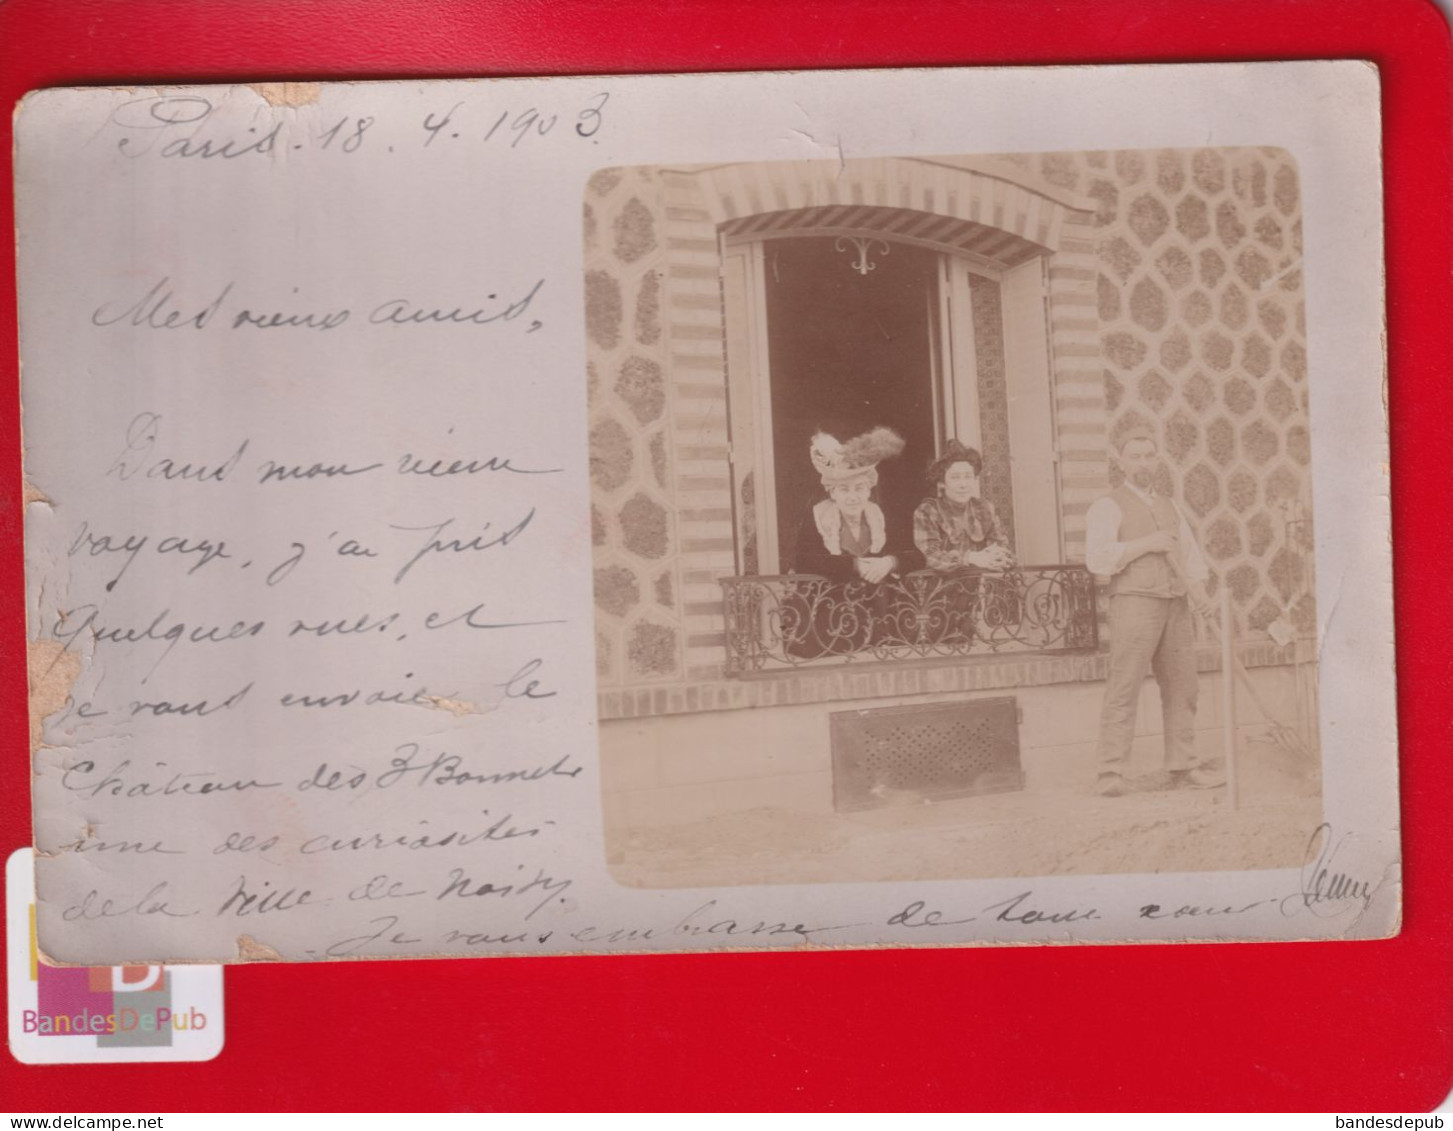 Paris. 18. 4. 1903
Mes vieux amis,
Dans mon vieux
voyage, j'ai pris
quelques vues, et
je vous envoie le
Château des 3 Bonnets
une des curiosités
de la Ville de Noisy.
- Je vous embrasse de tout cœur.
BandesDePub
bandesdepub